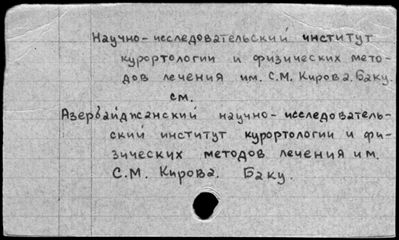 Научно-исследовательский институт
курортологии и физических мето-
дов лечения им. С.М. Кирова. Баку.
см.
Азербайджанский научно-исследователь-
ский институт курортологии и фи-
зических методов лечения им.
С.М. Кирова. Баку.